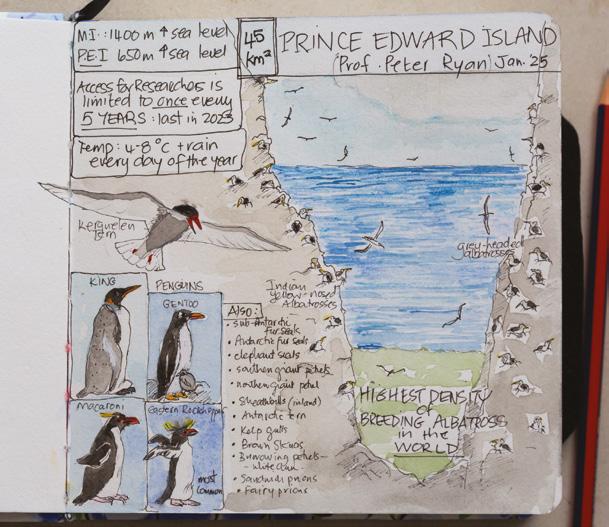 M.I.: 1400 m ↑ sea level
P.E.I 650m ↑ sea level
45
km²
PRINCE EDWARD ISLAND
(Prof. Peter Ryan) Jan. 25
Access for Researchers is
limited to once every
5 YEARS: last in 2023
Temp: 4-8°C + rain
every day of the year
Kerguelen
tern
grey-headed
albatrosses
Indian
Yellow-nosed
Albatrosses
KING
PENGUINS
GENTOO
Macaroni
Eastern Rockhopper
most
common
Also:
• sub-Antarctic
fur seals
• Antarctic fur seals
• elephant seals
• southern giant petrels
• northern giant petrel
• Sheathbills (inland)
• Antarctic tern
• Kelp gulls
• Brown Skuas
• Burrowing petrels -
- white chin
• Sandwich prions
• Fairy prions
HIGHEST DENSITY
of
BREEDING ALBATROSS
in the
WORLD